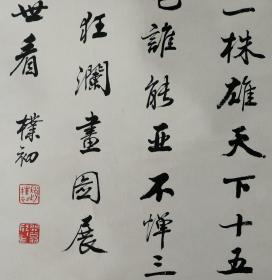 一株雄天下十五
誰能亞不憚三
狂瀾畫圖展
世看
樸初